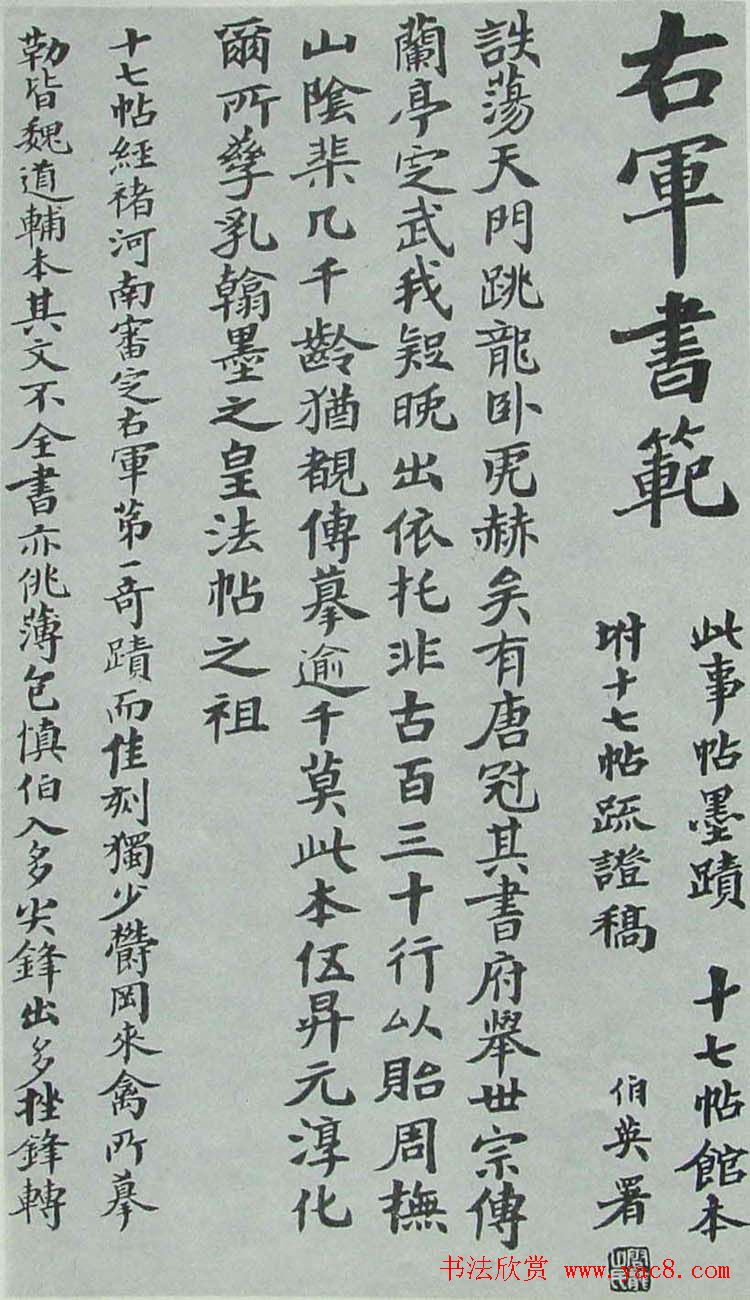 右軍書範
此事帖墨蹟 十七帖館本
坿十七帖疏證稿
伯英署
詄蕩天門跳龍卧虎赫矣有唐冠其書府舉世宗傳
蘭亭定武我疑晚出依托非古百三十行以貽周撫
山陰棐几千齡猶覩傳摹逾千莫此本伍昇元淳化
爾所孳乳翰墨之皇法帖之祖
十七帖經褚河南審定右軍第一奇蹟而佳刻獨少鬱岡來禽所摹
勒皆魏道輔本其文不全書亦佻薄包慎伯入多尖鋒出多挫鋒轉
书法欣赏 www.yac8.com